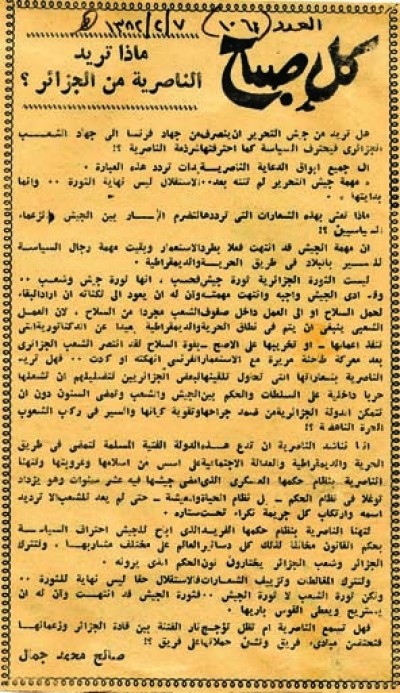 العدد (١٠٦٤) ١٣٨٢/٢/٧ هـ
كل صباح
ماذا تريد
الناصرية من الجزائر ؟
هل تريد من جيش التحرير ان ينصرف من جهاد فرنسا الى جهاد الشعب
الجزائرى فيحترف السياسة كما احترفتها شرذمة الناصرية ؟!
ان جميع ابواق الدعاية الناصرية بدات تردد هذه العبارة .
« مهمة جيش التحرير لم تنته بعد .. الاستقلال ليس نهاية الثورة .. وانما
بدايتها »
ماذا تعنى بهذه الشعارات التى ترددها لتضرم النار بين الجيش والزعماء
السياسيين ؟!
ان مهمة الجيش قد انتهت فعلا بطرد الاستعمار وبقيت مهمة رجال السياسة
للسير بالبلاد فى طريق الحرية والديمقراطية .
ليست الثورة الجزائرية ثورة جيش فحسب ، انها ثورة جيش وشعب ..
وقد ادى الجيش واجبه وانتهت مهمته وان له ان يعود الى ثكناته ان اراد البقاء
لحمل السلاح او الى العمل داخل صفوف الشعب مجردا من السلاح ، لان العمل
الشعبى ينبغى ان يتم فى نطاق الحرية والديمقراطية بعيدا عن الدكتاتورية التى
تنفذ اعمالها - او تخريبها على الاصح - بقوة السلاح لقد انتصر الشعب الجزائرى
بعد معركة طاحنة مريرة مع الاستعمار الفرنسى انهكته او كادت .. فهل تريد
الناصرية بشعاراتها التى تحاول تلقينها لبعض الجزائريين لتضليلهم ان تشعلها
حربا داخلية على السلطات والحكم بين الجيش والشعب وتمضى السنون دون ان
تتمكن الدولة الجزائرية من ضمد جراحها وتقوية كيانها والسير فى ركب الشعوب
الحرة الناهضة ؟!
اننا نناشد الناصرية ان تدع هذه الدولة الفتية المسلمة لتمضى فى طريق
الحرية والديمقراطية والعدالة الاجتماعية على اسس من اسلامها وعروبتها ولتهنأ
الناصرية بنظام حكمها العسكرى الذى امضى جيشها فيه عشر سنوات وهو يزداد
توغلا فى نظام الحكم - بل نظام الحياة والمعيشة - حتى لم يعد للشعب الا ترديد
اسمه وارتكاب كل جريمة نكراء تحت ستاره .
لتهنأ الناصرية بنظام حكمها الفريد الذى اباح للجيش احتراف السياسة
بحكم القانون مخالفا لذلك كل دساتير العالم على مختلف مشاربها ، ولتترك
الجزائر وشعب الجزائر يختارون لون الحكم الذى يرونه .
ولتترك المغالطات وتزييف الشعارات فالاستقلال حقا ليس نهاية للثورة ..
ولكن ثورة الشعب لا ثورة الجيش .. فثورة الجيش قد انتهت وان له ان
يستريح ويعطى القوس باريها .
فهل تسمع الناصرية ام تظل تؤجج نار الفتنة بين قادة الجزائر وزعمائها
فتحتضن مبادىء فريق وتشن حملاتها على فريق ؟!
صالح محمد جمال